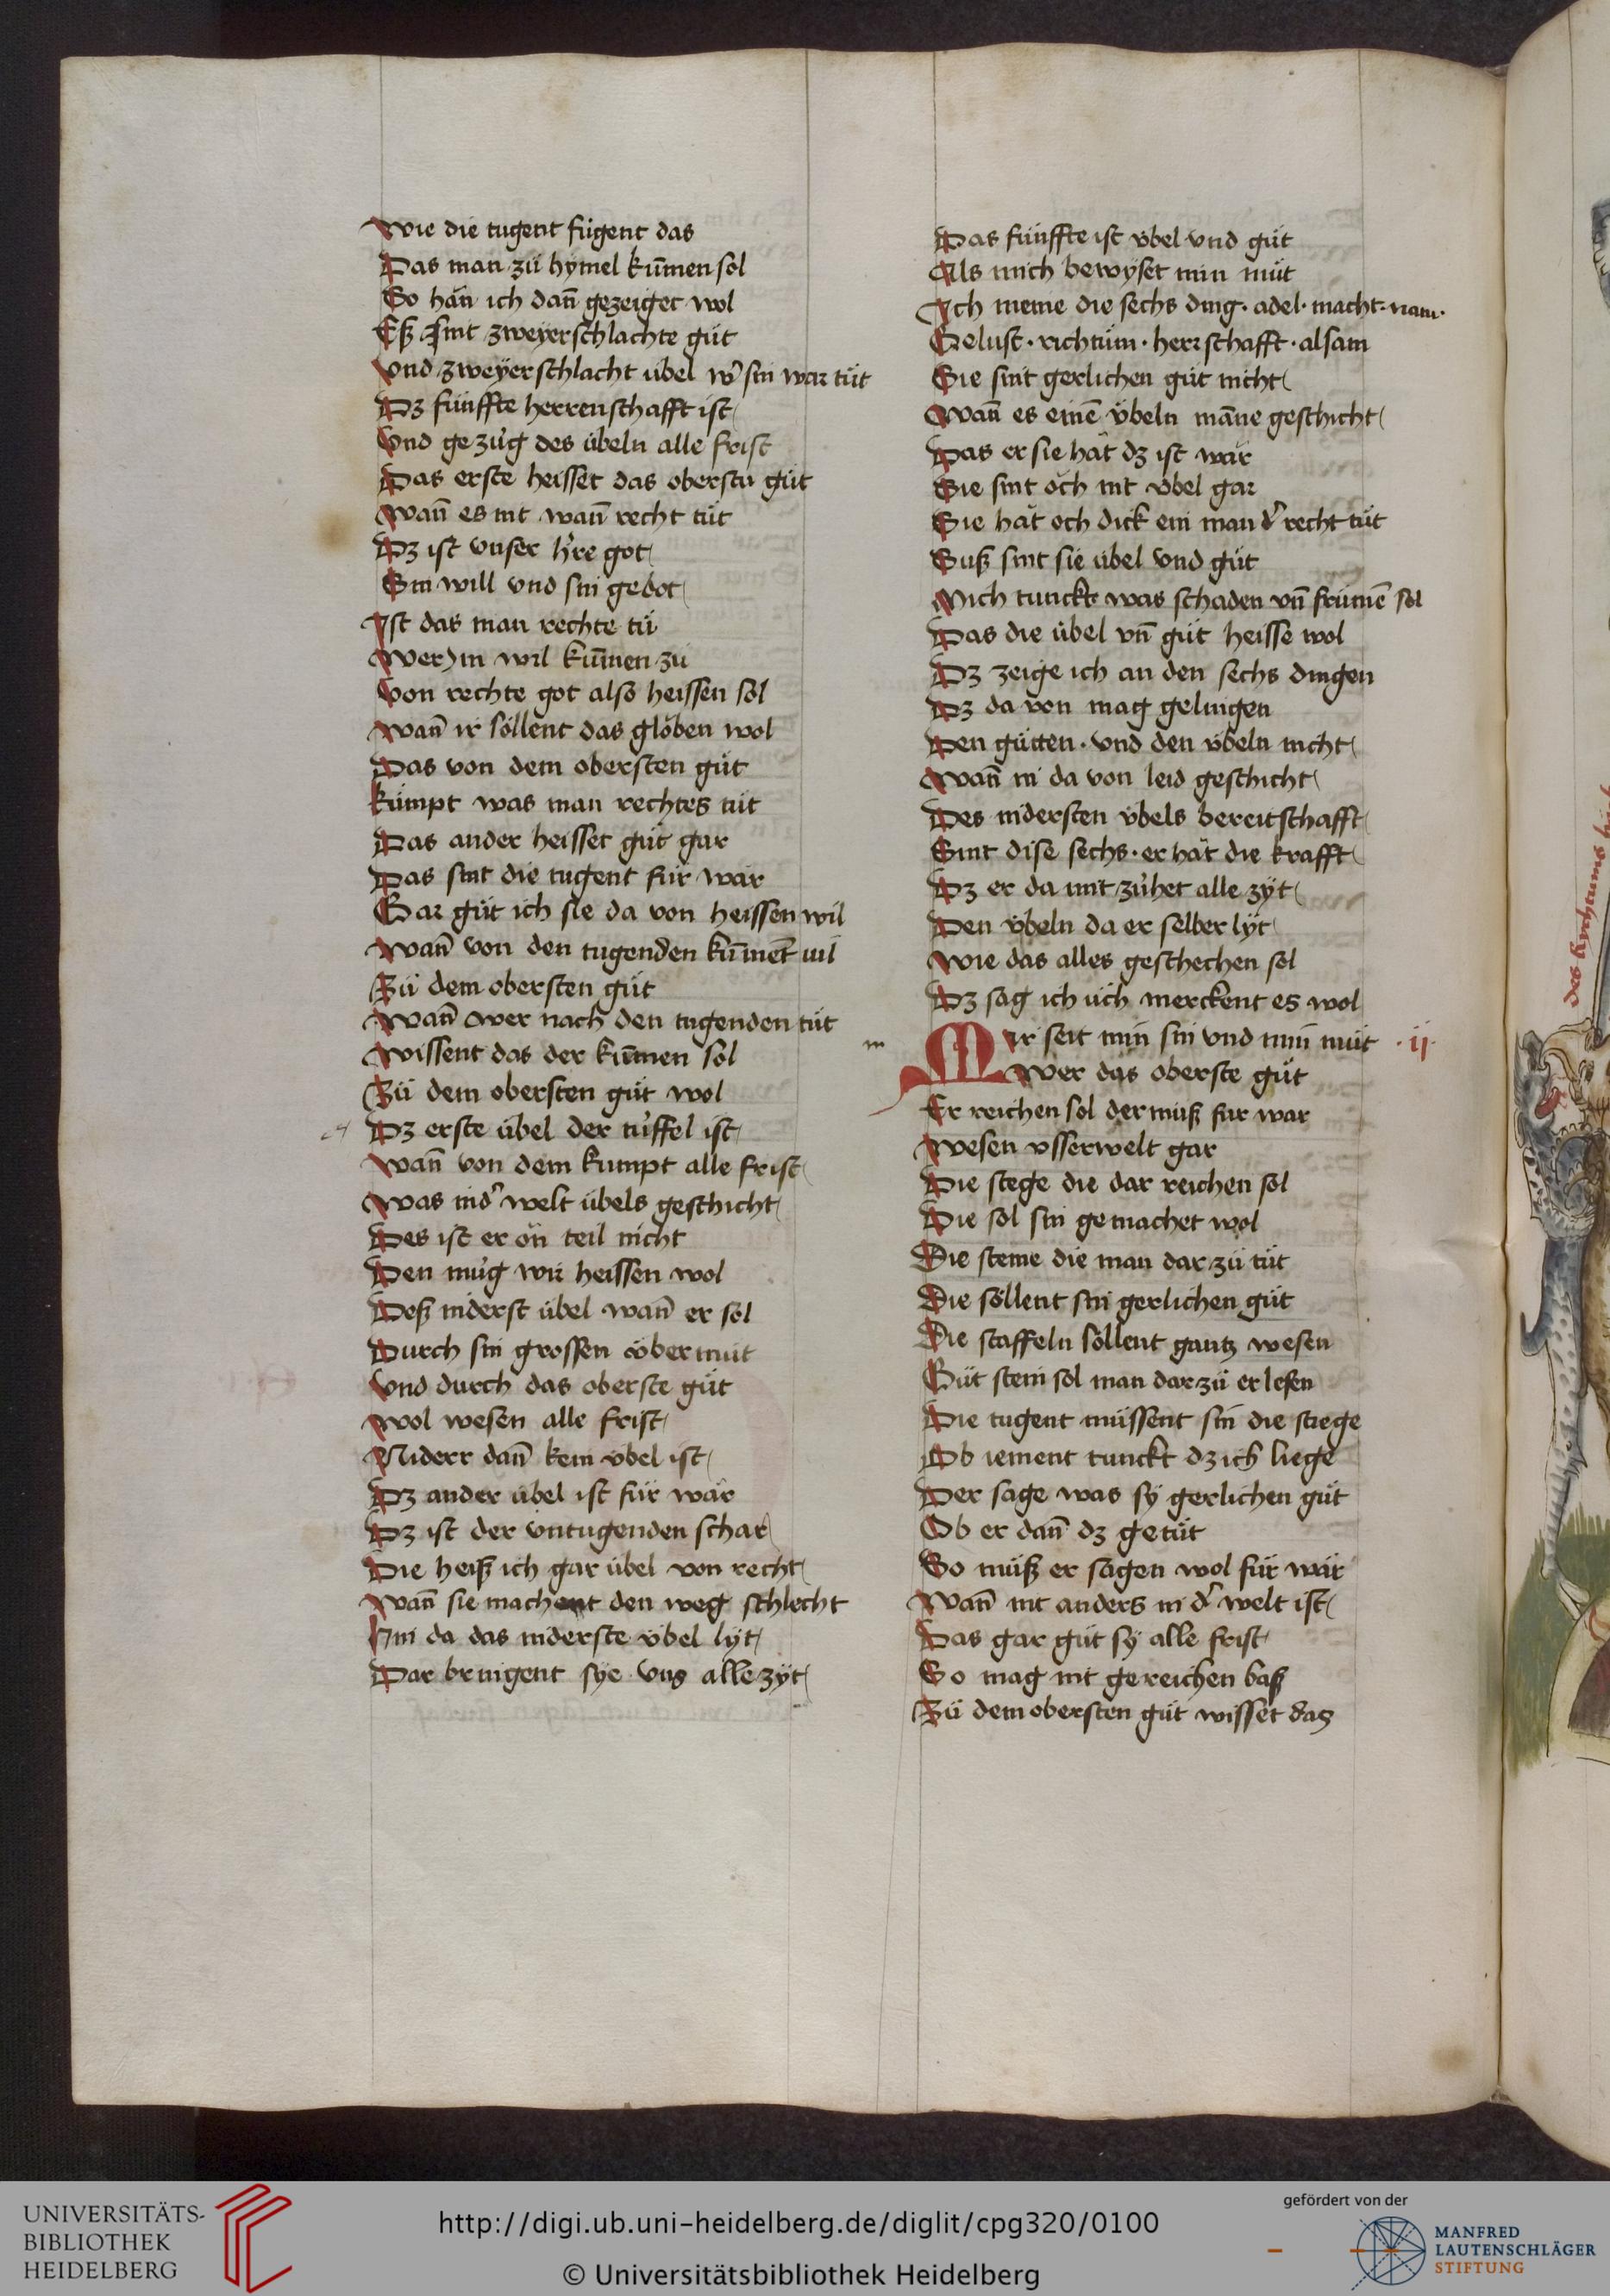 Wie die tugent fügent das
Das man zü hymel kūmen sol
So hän ich dañ gezeiget wol
Eß sint zweyerschlachte güt
Vnd zweyerschlacht übel w͛ sin war tüt
Dz fünffte herrenschafft ist
Vnd gezüg des übeln alle frist
Das erste heisset das oberstu güt
Wañ es nit wañ recht tüt
Dz ist vnser h͛re got
Sin will vnd sin gebot
Ist das man rechte tü
Wer in wil kūmen zü
Von rechte got also heissen sol
Wañ ir söllent das glöben wol
Das von dem obersten güt
kümpt was man rechtes tüt
Das ander heisset güt gar
Das sint die tugent für wär
Gar güt ich sie da von heissen wil
Wañ von den tugenden kūment uil
Zü dem obersten güt
Wañ wer nach den tugenden tüt
Wissent das der kūmen sol
Zü dem obersten güt wol
Dz erste übel der tüffel ist
Wañ von dem kumpt alle frist
Was in d͛ welt übels geschicht
Des ist er ön teil nicht
Den müg wir heissen wol
Deß niderst übel wañ er sol
Durch sin grossen übermüt
Vnd durch das oberste güt
Wol wesen alle frist
Niderr dañ kein übel ist
Dz ander übel ist für wär
Dz ist der vntugenden schar
Die heiß ich gar übel von recht
Wañ sie machent den weg schlecht
Hin da das niderste übel lyt
Dar bringent sye vns alle zyt
Das fünffte ist übel vnd güt
Als mich bewyset min müt
Ich meine die sechs ding · adel · macht · nam ·
Gelust · richtüm · herrschafft · alsam
Sie sint gerlichen güt nicht
Wañ es einē übeln māne geschicht
Das er sie hät dz ist wär
Sie sint öch nit übel gar
Sie hät och dick ein man d͛ recht tüt
Suß sint sie übel vnd güt
Mich tunckt was schaden vñ frümē sol
Das die übel vñ güt heisse wol
Dz zeige ich an den sechs dingen
Dz da von mag gelingen
Den gütten · vnd den übeln nicht
Wañ in da von leid geschicht
Des nidersten übels bereitschafft
Sint dise sechs · er hät die krafft
Dz er da mit zühet alle zyt
Den übeln da er selber lyt
Wie das alles geschechen sol
Dz sag ich üch merckent es wol
m
Mir seit min sin vnd min müt · ij ·
Wer das oberste güt
Er reichen sol der müß für war
Wesen vsserwelt gar
Die stege die dar reichen sol
Die sol sin gemachet wol
Die steine die man dar zü tüt
Die söllent sin gerlichen güt
Die staffeln söllent gantz wesen
Güt stein sol man dar zü erlesen
Die tugent müssent sin die stiege
Ob iement tunckt dz ich liege
Der sage was sy gerlichen güt
Ob er dañ dz getüt
So müß er sagen wol für wär
Wañ nit anders in d͛ welt ist
Das gar güt sy alle frist
So mag nit gereichen baß
Zü dem obersten güt wisset daz
UNIVERSITÄTS-
BIBLIOTHEK
HEIDELBERG
http://digi.ub.uni-heidelberg.de/diglit/cpg320/0100
© Universitätsbibliothek Heidelberg
gefördert von der
MANFRED
LAUTENSCHLÄGER
STIFTUNG